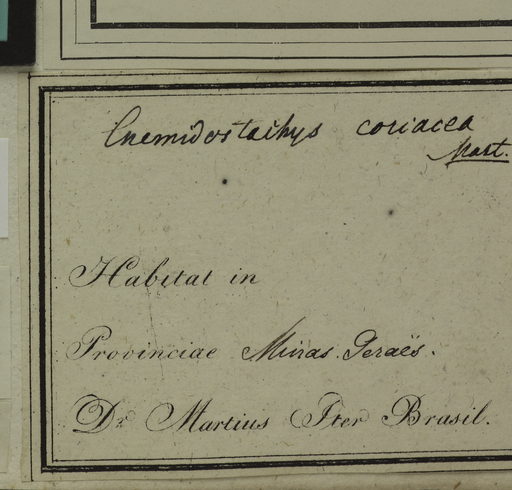 Cnemidostachys coriacea
Mart.
Habitat in
Provinciae Minas Geraës.
Dr. Martius Iter Brasil.